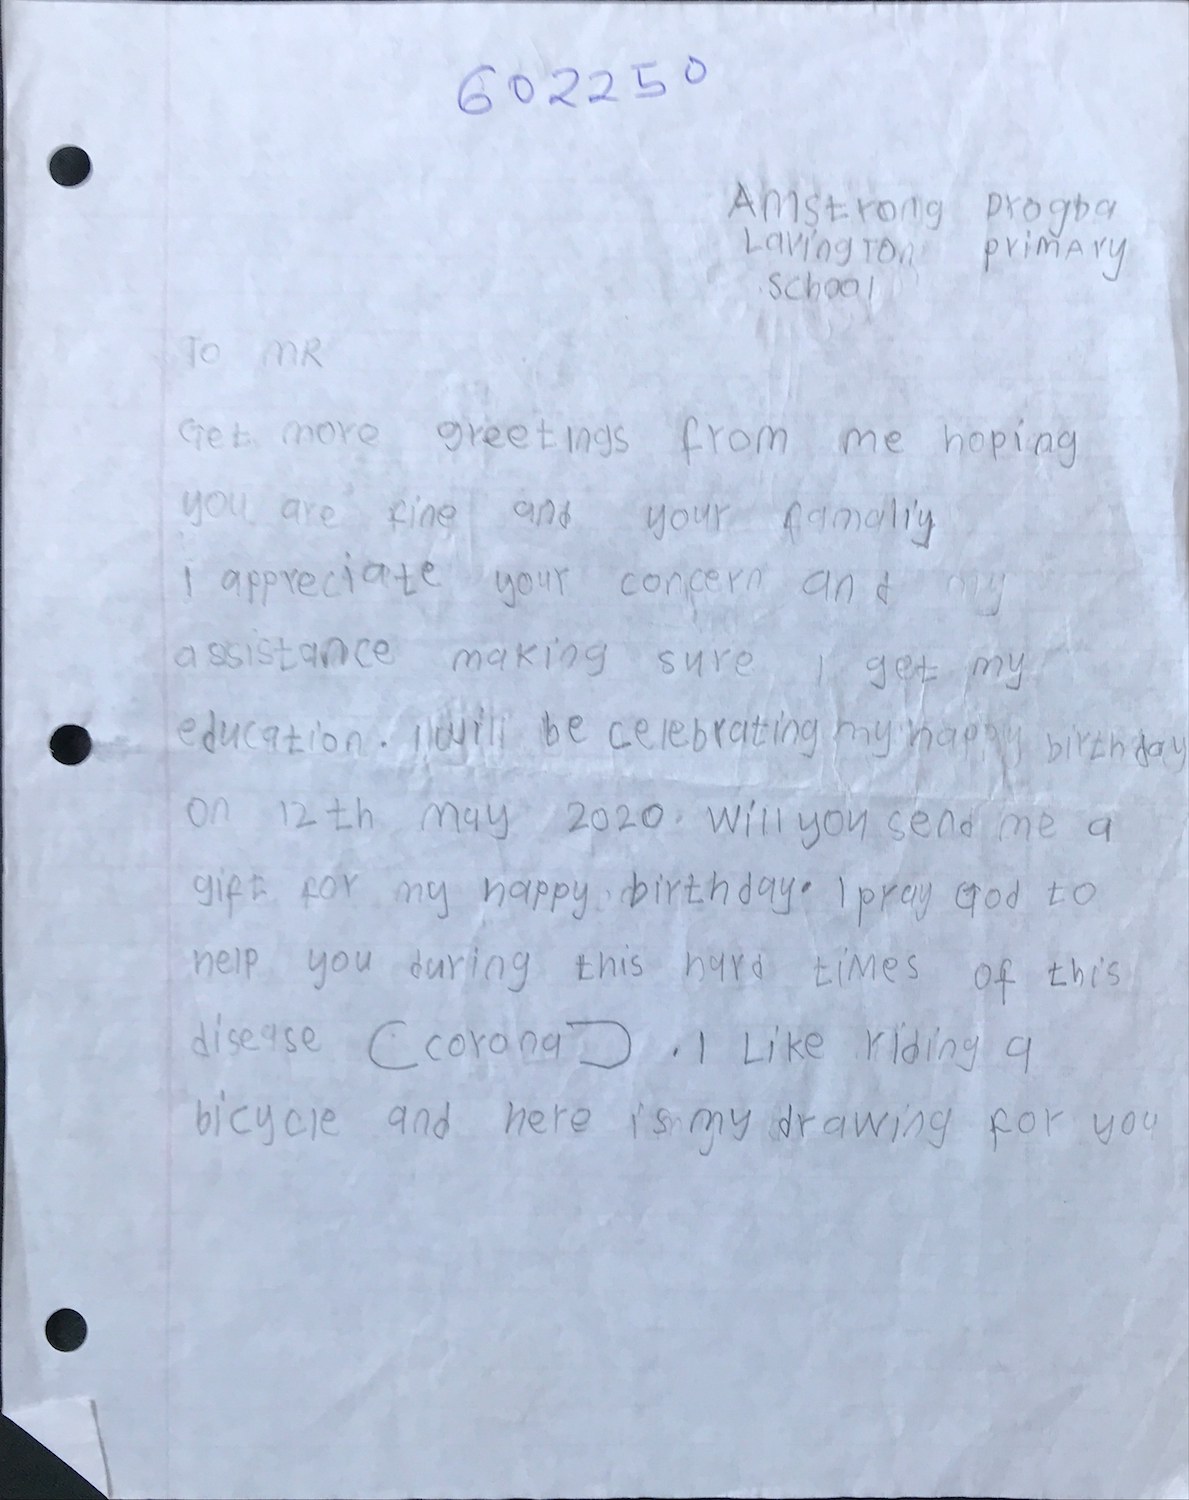 602250
Amstrong Drogba
Lavington primAry
school
To MR
Get more greetings from me hoping
you are fine and your famaliy
i appreciate your concern and my
assistance making sure I get my
education. I will be celebrating my happy birthday
on 12th may 2020. Will you send me a
gift for my happy birthday. I pray God to
help you during this hard times of this
disease (corona). I Like riding a
bicycle and here is my drawing for you